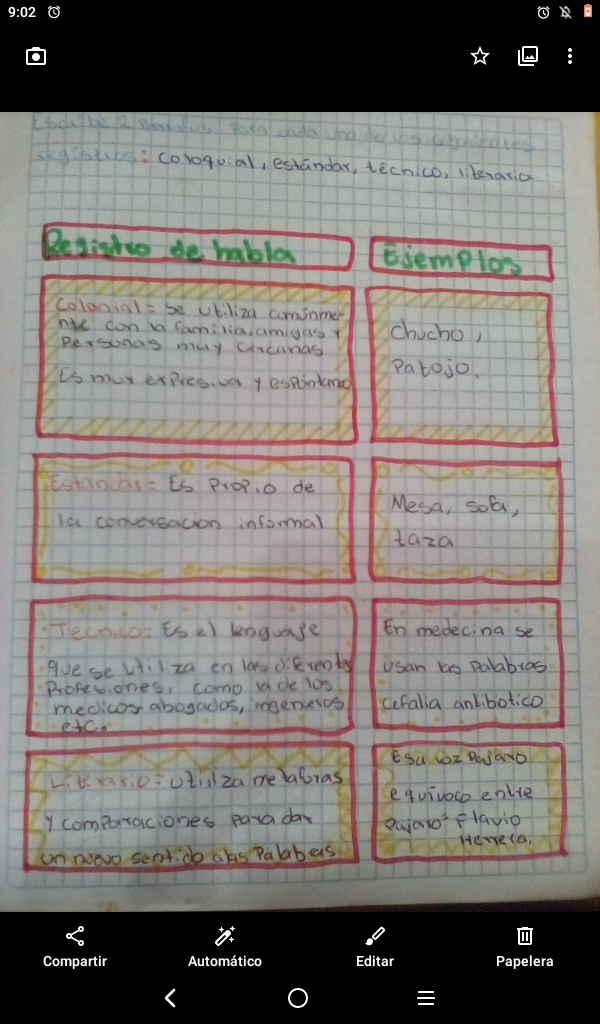 9:02
Escribe 2 para cada uno de los siguientes
registros: coloquial, estándar, técnico, literaria
Registro de habla
Ejemplos
Colonial = Se utiliza comúnme-
nte con la familia, amigas y
Personas muy cercanas
Es muy expresiva y espontanea
Chucho,
Patojo.
Estandar = Es Propio de
la conversacion informal
Mesa, sofa,
taza
Tecnico = Es el lenguaje
que se utiliza en las diferentes
Profesiones, como la de los
medicos abogados, ingenieros
etc.
En medecina se
usan las Palabras
cefalia antibotico
Literario = Utiliza metaforas
Y comparaciones para dar
un nuevo sentido a las Palabras
Esa voz Pajaro
equivoco entre
Pajaro = Flavio
Herrera.
Compartir
Automático
Editar
Papelera